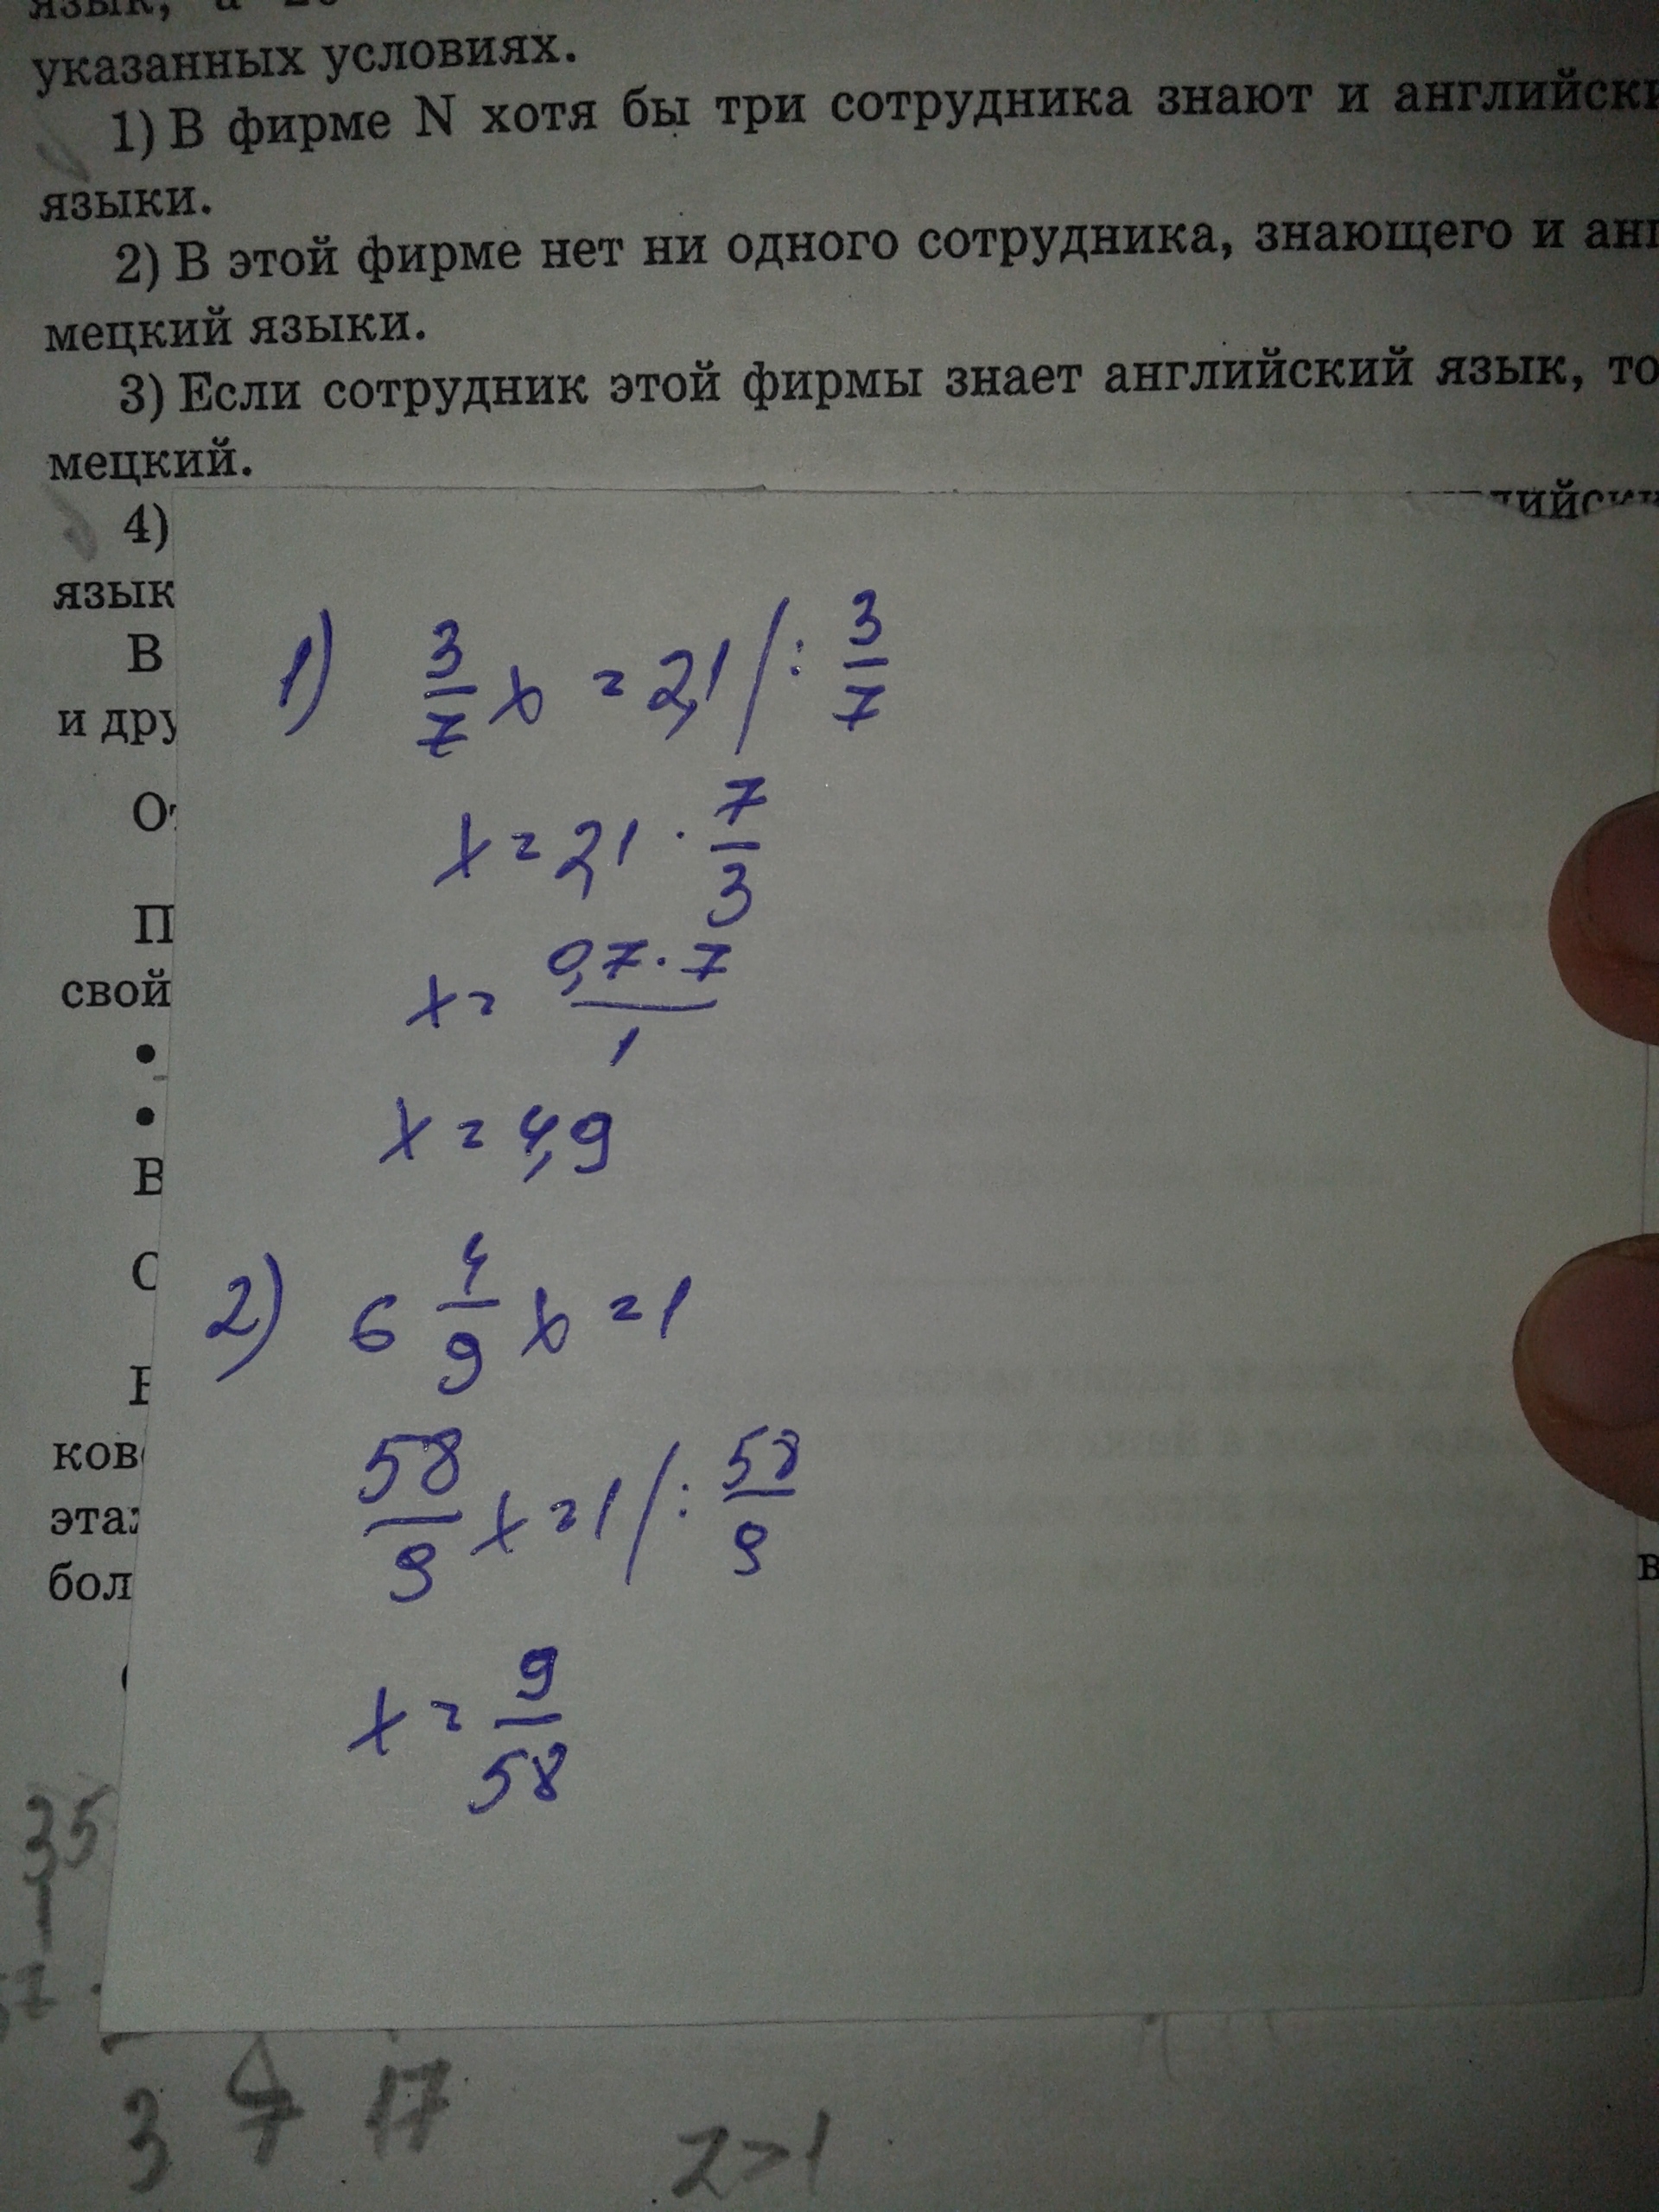 указанных условиях.
1) В фирме N хотя бы три сотрудника знают и
языки.
2) В этой фирме нет ни одного сотрудника, знающего и
мецкий языки.
3) Если сотрудник этой фирмы знает английский язык, то
мецкий.
4)
язык
В
и
свой
•
•
В
1) 3/7 x = 2,1 / : 3/7
x = 2,1 · 7/3
x = 0,7 · 7/1
x = 4,9
2) 6 4/9 x = 1
58/9 x = 1 / : 58/9
x = 9/58
35
3 17
2>1